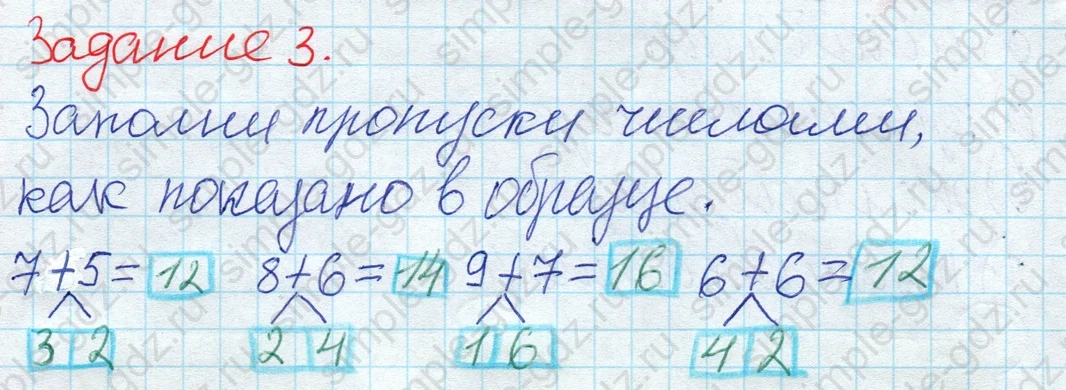 Задание 3.
Заполни пропуски числами,
как показано в образце.
7+5=12 8+6=14 9+7=16 6+6=12
3 2 2 4 1 6 4 2